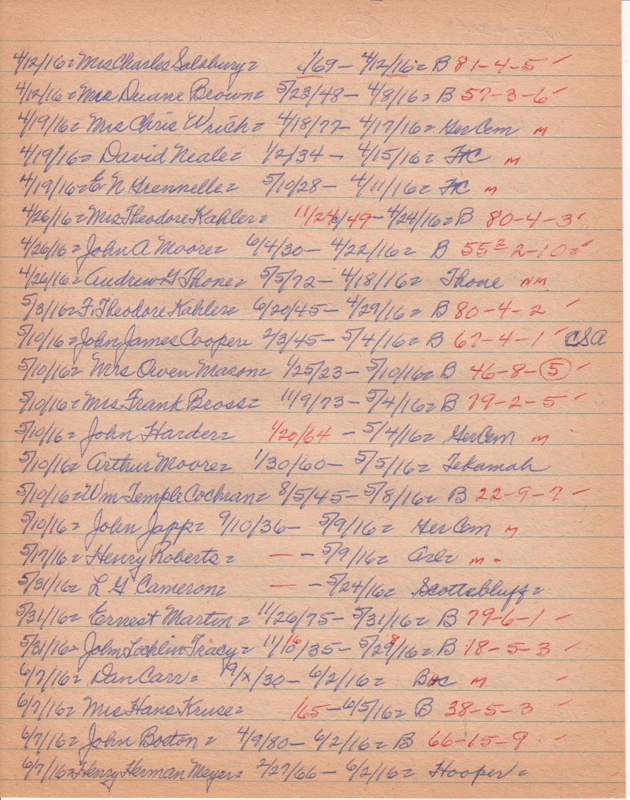 4/12/16= Mrs Charles Salsbury= /69 - 4/12/16= B 81-4-5 ✓
4/12/16= Mrs Duane Brown= 5/23/48 - 4/8/16= B 57-3-6 ✓
4/19/16= Mrs Chris Wrich= 4/18/77 - 4/17/16= Ger Cem m
4/19/16= David Neale= 1/2/34 - 4/15/16= m
4/19/16= E N Grennelle= 5/10/28 - 4/11/16= m
4/26/16= Mrs Theodore Kahler= 11/24/49 - 4/24/16= B 80-4-3 ✓
4/26/16= John A Moore= 6/4/30 - 4/22/16= B 55 2-10= ✓
4/26/16= Andrew G Thone= 5/5/72 - 4/18/16= Thone NM
5/3/16= F. Theodore Kahler= 6/20/45 - 4/29/16= B 80-4-2 ✓
5/10/16= John James Cooper= 2/3/45 - 5/4/16= B 67-4-1 ✓ CSA
5/10/16= Mrs Owen Mason= 1/25/23 - 5/10/16= B 46-8-5 ✓
5/10/16= Mrs Frank Beoss= 11/9/73 - 5/4/16= B 79-2-5 ✓
5/10/16= John Harder= 1/20/64 - 5/4/16= Ger Cem m
5/10/16= Arthur Moore= 1/30/60 - 5/5/16= Tekamah
5/10/16= Wm Temple Cochran= 8/5/45 - 5/8/16= B 22-9-7 ✓
5/10/16= John Japp= 9/10/36 - 5/9/16= Ger Cem m
5/17/16= Henry Roberts= — - 5/9/16= m
5/31/16= L G Cameron= — - 5/24/16= Scottsbluff=
5/31/16= Ernest Martin= 11/26/75 - 5/31/16= B 79-6-1 ✓
5/31/16= John Locklin Tracy= 11/16/35 - 5/28/16= B 18-5-3 ✓
6/7/16= Dan Carr= /x/30 - 6/2/16= m
6/7/16= Mrs Hans Kruse= /65 - 6/5/16= B 38-5-3 ✓
6/7/16= John Boston= 4/9/80 - 6/2/16= B 66-15-9 ✓
6/7/16= Henry Herman Meyer= 2/27/66 - 6/2/16= Hooper=